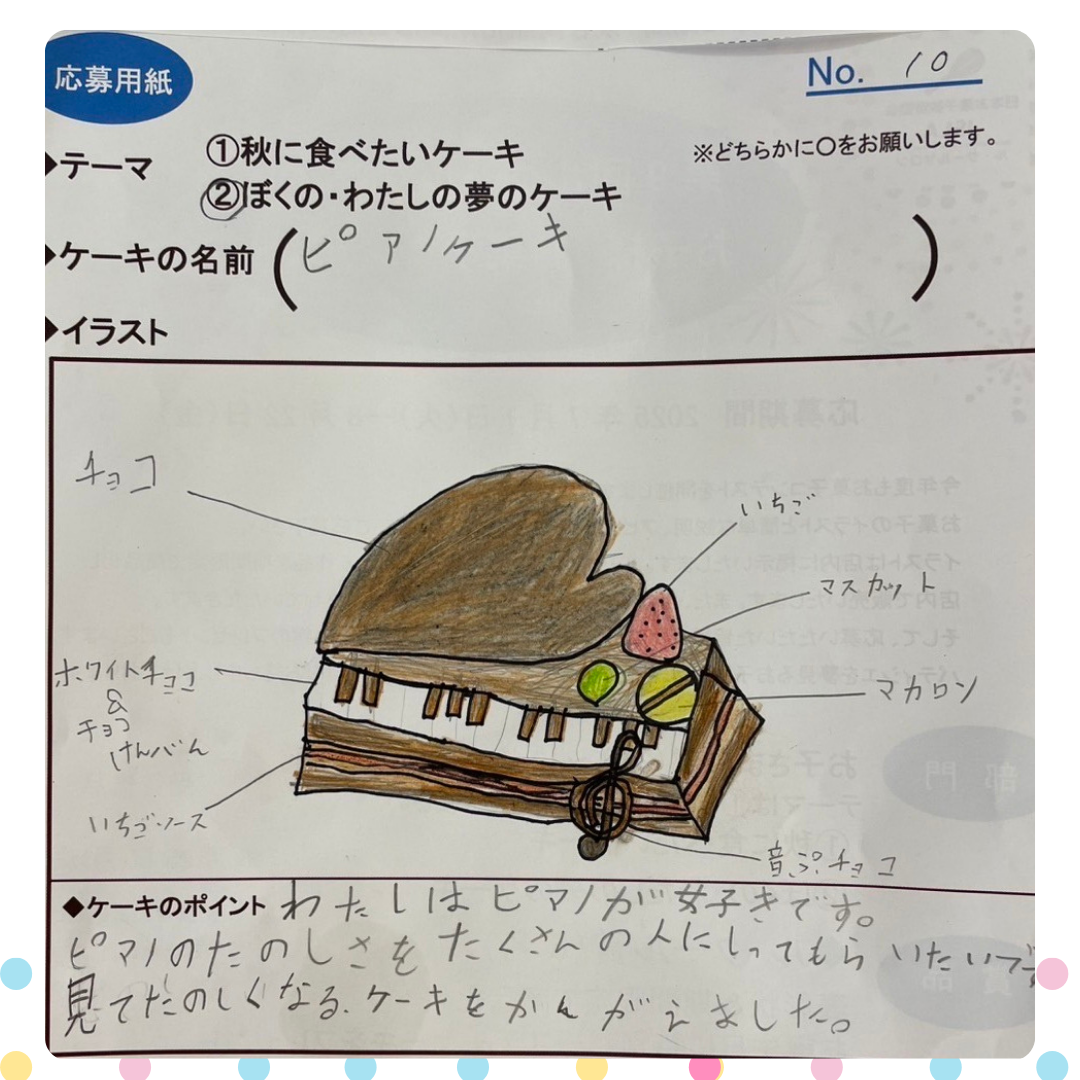 応募用紙
No. 10
◆テーマ
①秋に食べたいケーキ
※どちらかに〇をお願いします。
②ぼくの・わたしの夢のケーキ
◆ケーキの名前 (ピアノケーキ)
◆イラスト
チョコ
いちご
マスカット
ホワイトチョコ
&
チョコ
けんばん
マカロン
いちごソース
音ぷチョコ
◆ケーキのポイント わたしはピアノが好きです。
ピアノのたのしさをたくさんの人にしってもらいたいです
見てたのしくなる、ケーキをかんがえました。